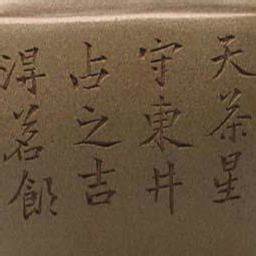 天茶星
守東井
占之吉
淂茗飲